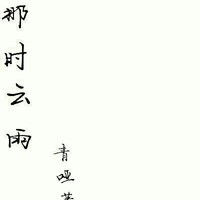 那时云雨
青哑